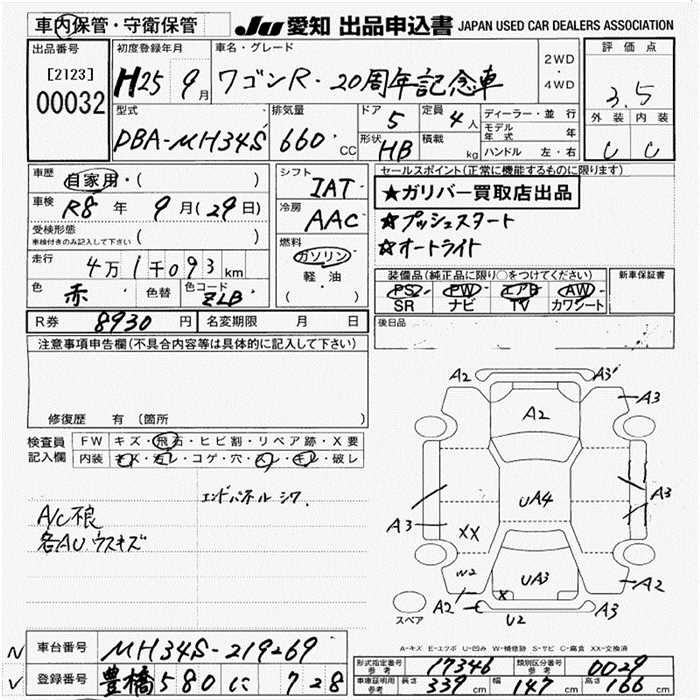 車内保管・守衛保管
JU 愛知 出品申込書 JAPAN USED CAR DEALERS ASSOCIATION
出品番号
[2123]
00032
初度登録年月
H25 9月
車名・グレード
ワゴンR・20周年記念車
2WD
・
4WD
評価点
3.5
外装 内装
C C
型式
DBA-MH34S
排気量
660 CC
ドア 5
定員 4人
形状 HB
積載 kg
ディーラー・並行
モデル年式 年
ハンドル 左・右
車歴 自家用・( )
車検 R8年 9月(29日)
受検形態
車検付きのみ記入して下さい ( )
走行 4万1千093km
色 赤 色替 色コード ZLB
シフト
IAT
冷房
AAC
燃料
ガソリン
・
軽・油
( )
セールスポイント(正常に機能するものに限ります)
★ガリバー買取店出品
☆プッシュスタート
☆オートライト
装備品(純正品に限り○をつけてください)
PS PW エアB AW
SR ナビ TV カワシート
新車保証書
R券 8930円 名変期限 月 日
後日品
注意事項申告欄(不具合内容等は具体的に記入して下さい)
修復歴 有(箇所 )
検査員記入欄
FW キズ・飛石・ヒビ割・リペア跡・X要
内装 キズ・汚レ・コゲ・穴・スレ・キレ・破レ
エンドパネル シワ
A/C不良
各AUウスキズ
A2 A3
A3
A2
A3
UA4
A3
XX
W2
UA3
X
A2
A2
U2
A3
スペア
A-キズ E-エクボ U-凹み W-補修跡 S-サビ C-腐食 XX-交換済
N 車台番号 MH34S-219269
V 登録番号 豊橋580に728
形式指定番号 参考 17346 類別区分番号 参考 0029
車庫証明用 参考 長さ 339cm 幅 147cm 高さ 166cm